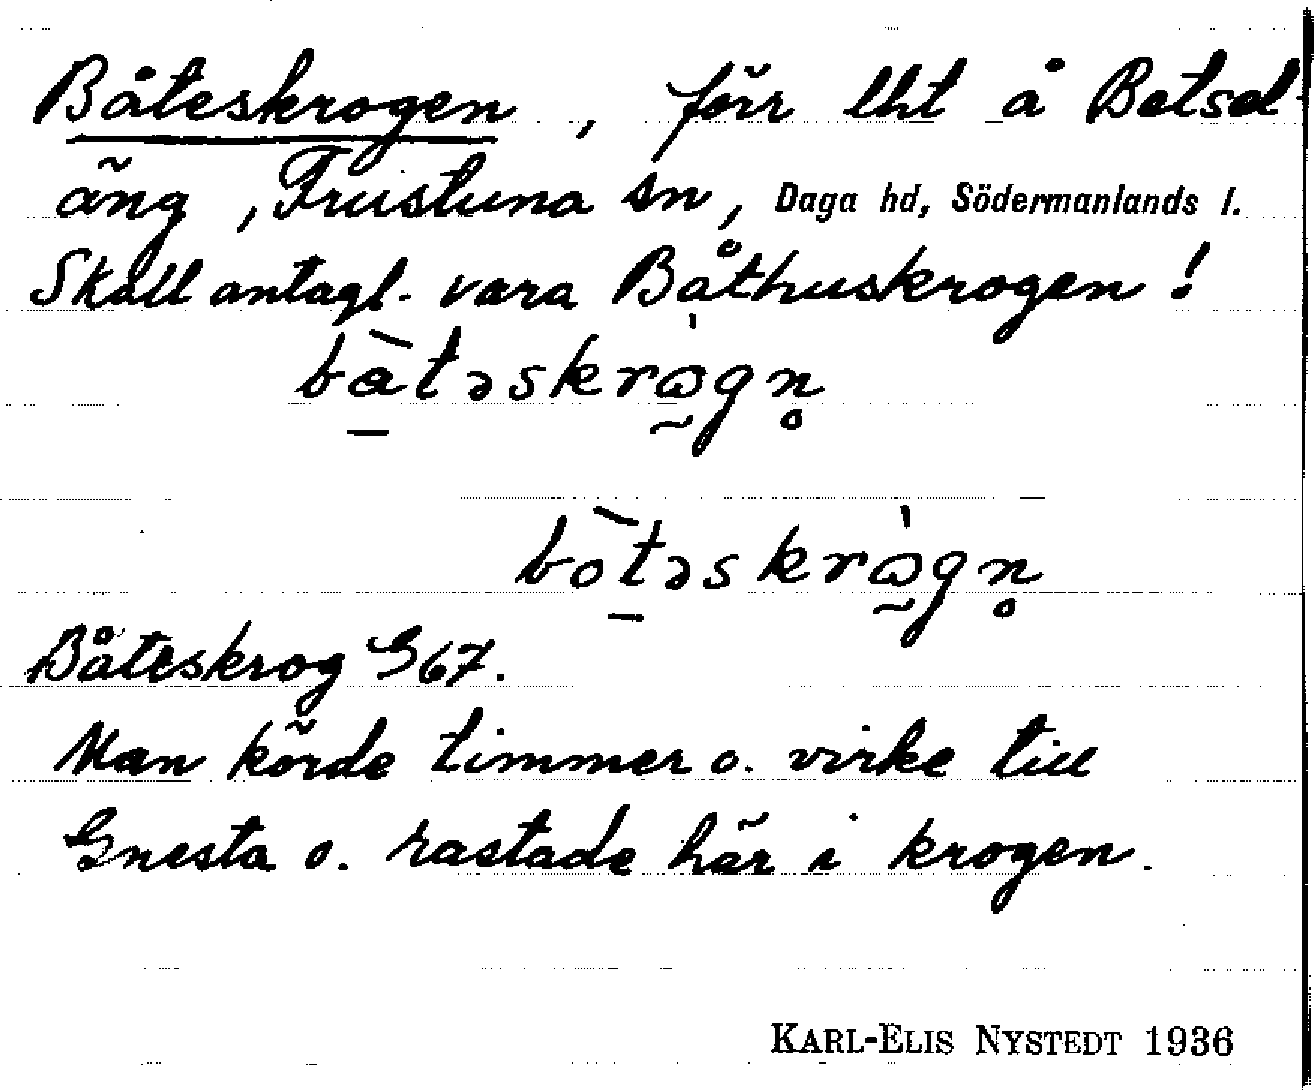 Båteskrogen, förr lht å Betsel
äng, Frustuna sn, Daga hd, Södermanlands l.
Skall antagl. vara Båthuskrogen!
bàtəskrὼgn̥
bòtəskrὼgn̥
Båteskrog G67.
Man körde timmer o. virke till
Gnesta o. rastade här i krogen.
KARL-ELIS NYSTEDT 1936